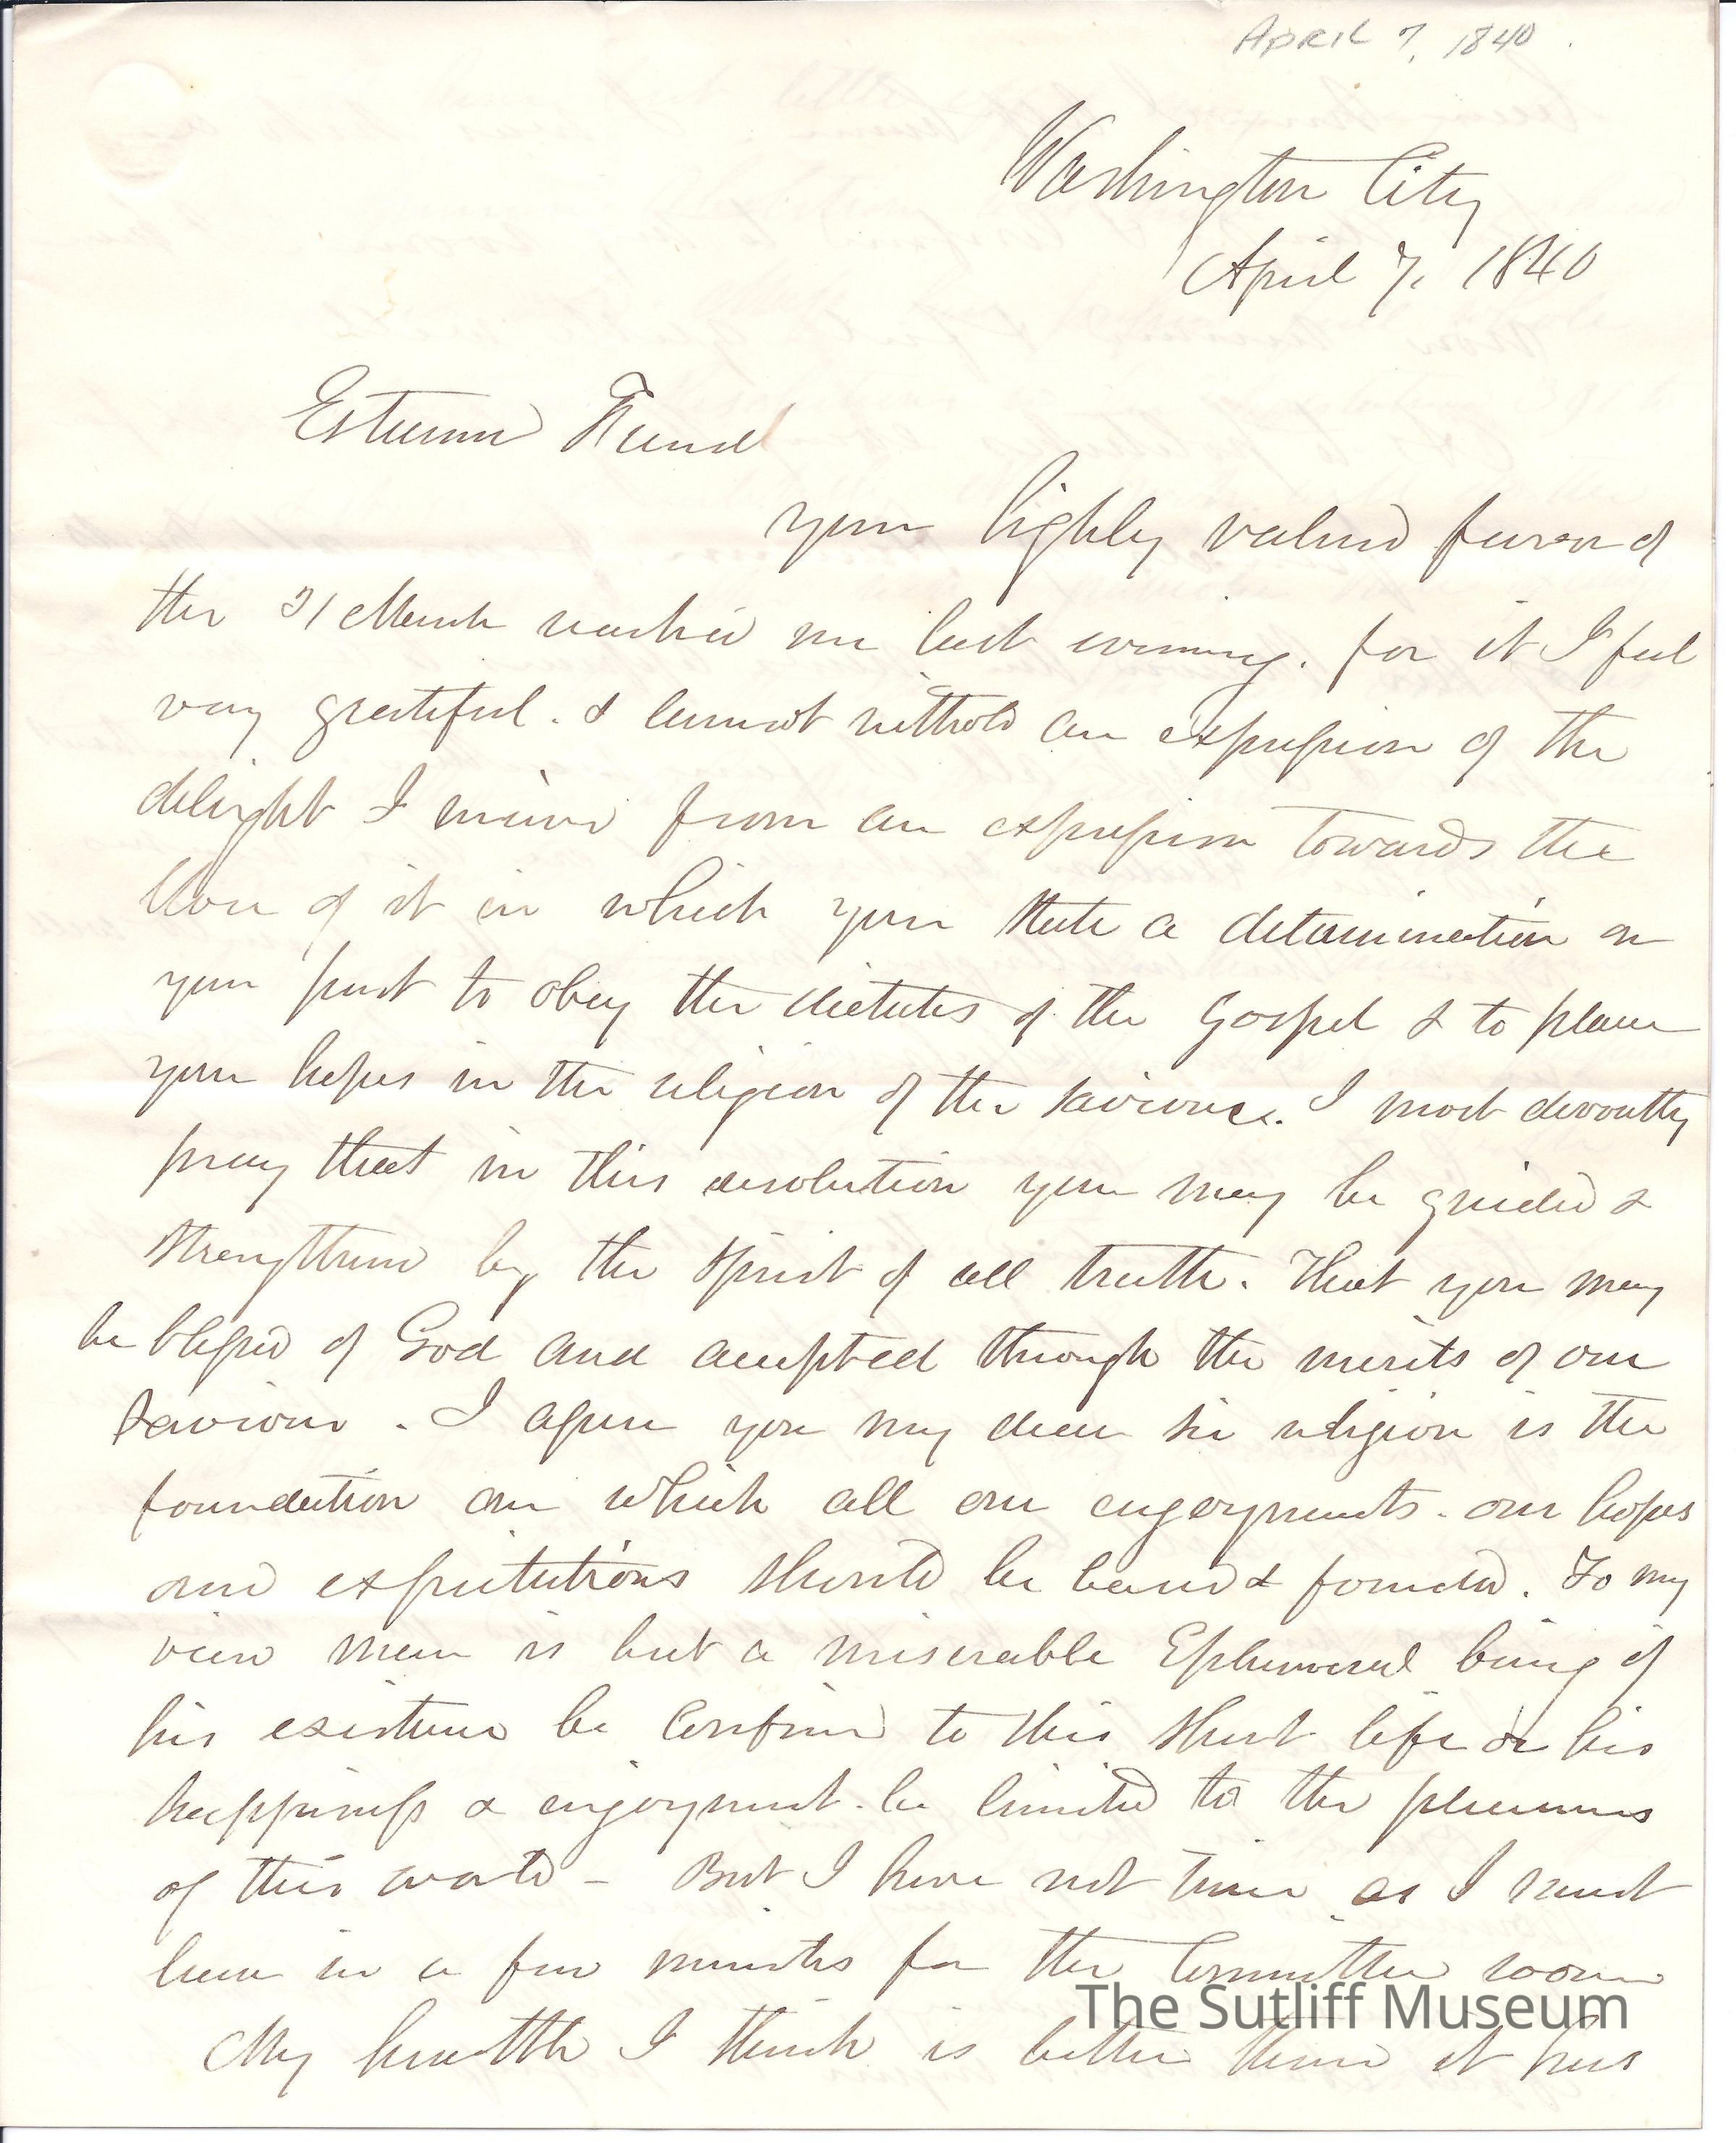 APRIL 7, 1840.
Washington City
April 7, 1840
Esteemed Friend
your highly valued favor of
the 31 March reached me last evening. for it I feel
very grateful. & cannot withold an expression of the
delight I received from an expression towards the
close of it in which you state a determination on
your part to obey the dictates of the Gospel & to place
your hopes in the religion of the Saviour. I most devoutly
pray that in this resolution you may be guided &
strengthened by the spirit of all truth. That you may
be blessed of God and accepted through the merits of our
Saviour. I assure you my dear sir religion is the
foundation on which all our engoyments. our hopes
and expectations should be based & founded. To my
view man is but a miserable Ephemeral being if
his existence be confined to this short life or his
happiness & engoyment. be limited to the pleasures
of this world - But I have not time as I must
leave in a few minutes for the Committee room
My health I think is better than it has
The Sutliff Museum